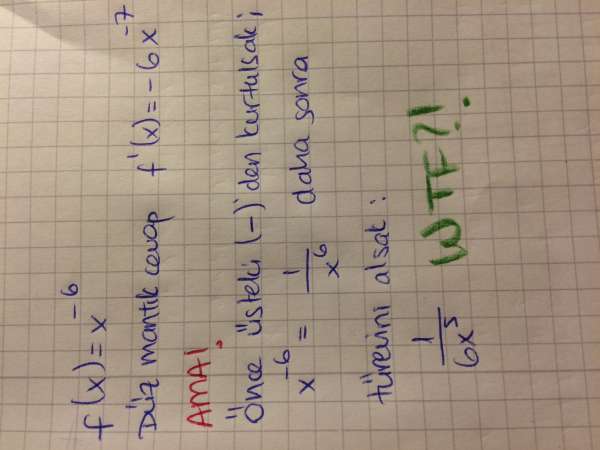 f(x) = x^-6
Düz mantık cevap f'(x) = -6x^-7
AMA!
Önce üsteki (-)'den kurtulsak;
x^-6 = 1/x^6 daha sonra
türevini alsak:
1/6x^5 WTF?!